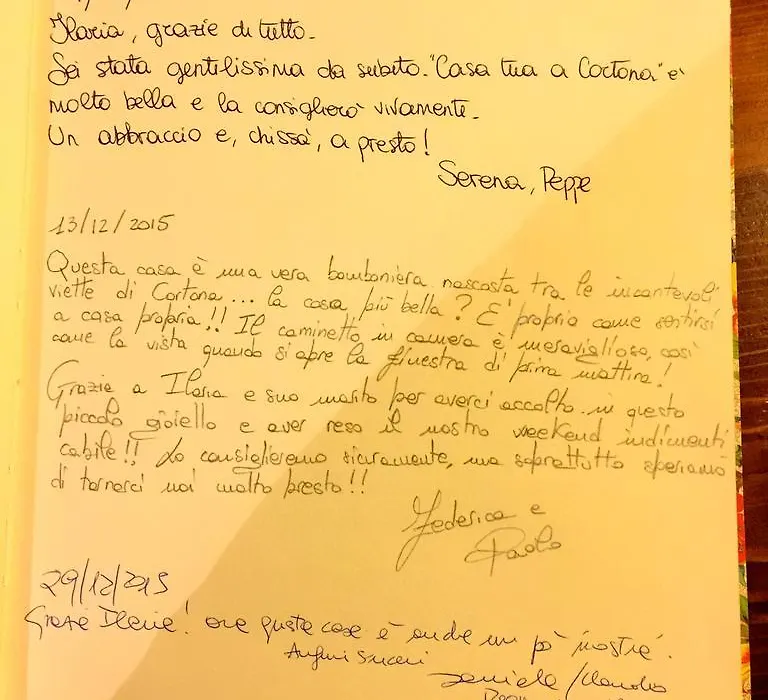 Ilaria, grazie di tutto.
Sei stata gentilissima da subito. "Casa tua a Cortona" e'
molto bella e la consigliero' vivamente.
Un abbraccio e, chissa', a presto!
Serena, Peppe
13/12/2015
Questa casa è una vera bomboniera nascosta tra le incantevoli
viette di Cortona... la cosa più bella? E' proprio come sentirsi
a casa propria!! Il caminetto in camera è meraviglioso, così
come la vista quando si apre la finestra di prima mattina!
Grazie a Ilaria e suo marito per averci accolto in questo
piccolo gioiello e aver reso il nostro weekend indimenti
cabile!! Lo consiglieremo sicuramente, ma soprattutto speriamo
di tornarci noi molto presto!!
Federica e
Paolo
29/12/2015
Grazie Ilaria! ora questa casa è anche un pò "nostra".
Auguri sinceri
Daniela/Claudio